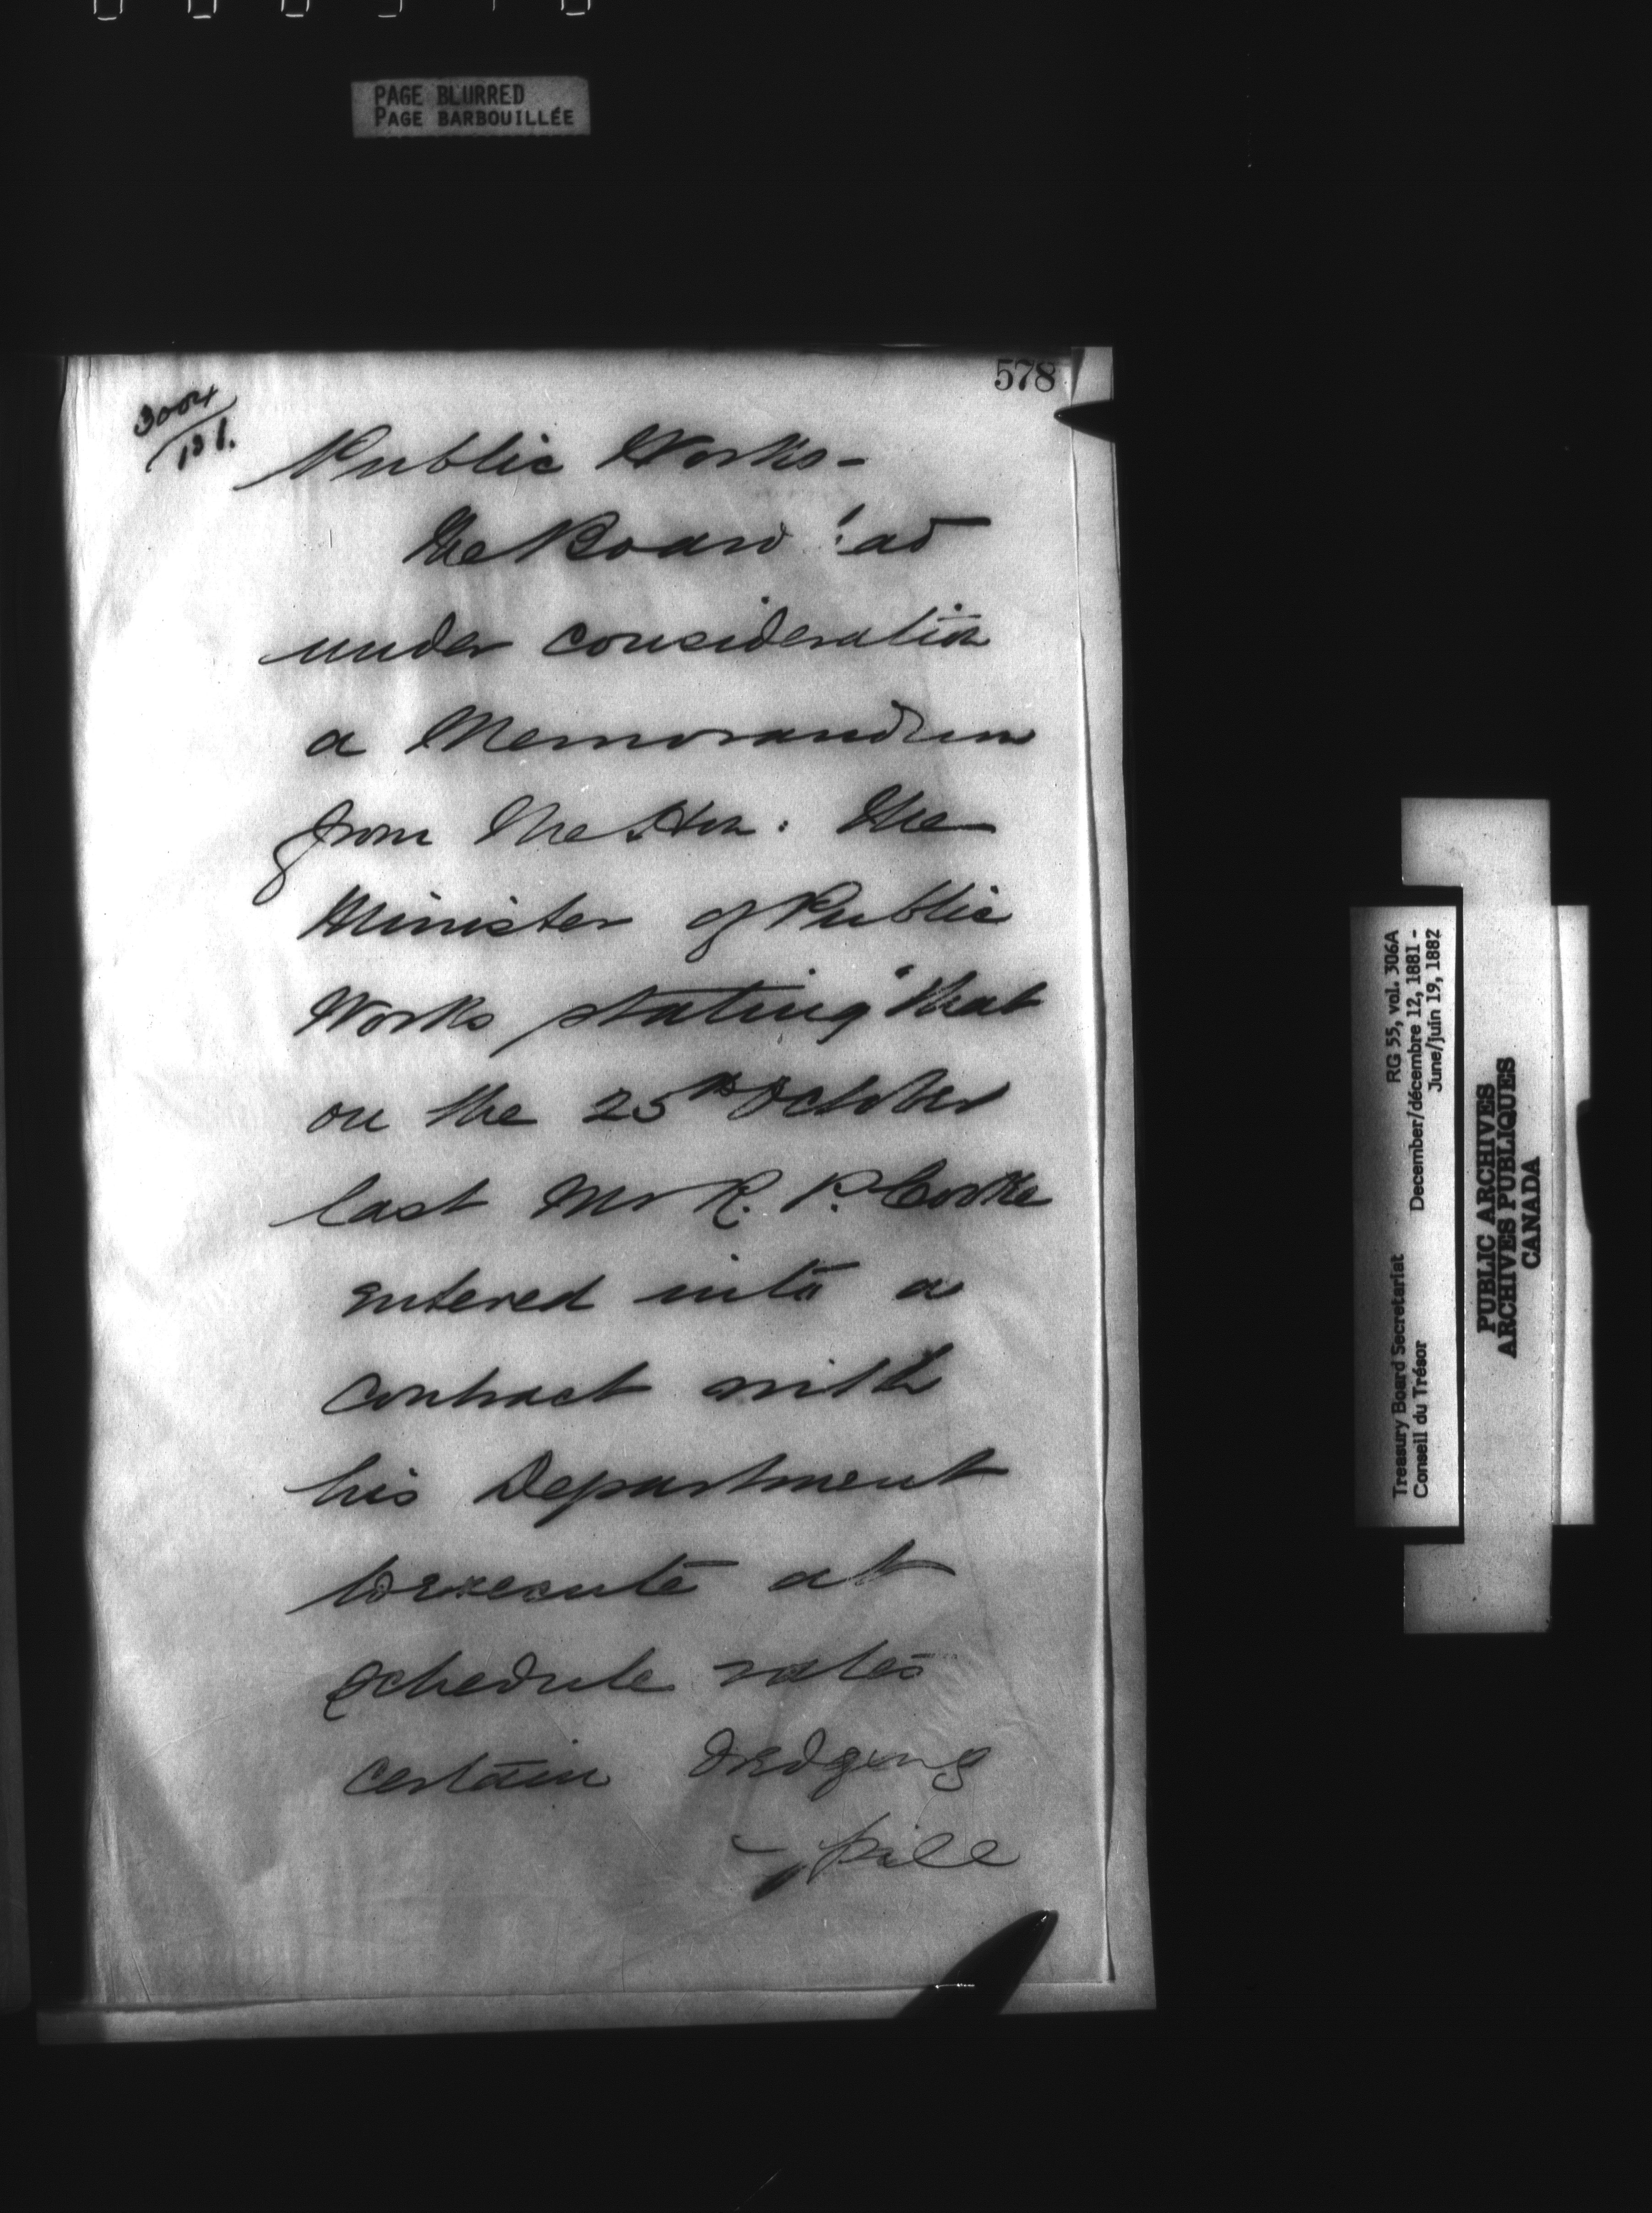 PAGE BLURRED
PAGE BARBOUILLÉE
578
3004
Public Works-
The Board had
under consideration
a Memorandum
from the Hon. the
Minister of Public
Works stating "that
on the 25th October
last Mr R. P. Cooke
entered into a
contract with
his Department
to execute at
schedule rates
certain dredging
pile
Treasury Board Secretariat RG 55, vol. 306A
Conseil du Trésor December/décembre 12, 1881 -
June/juin 19, 1882
PUBLIC ARCHIVES
ARCHIVES PUBLIQUES
CANADA